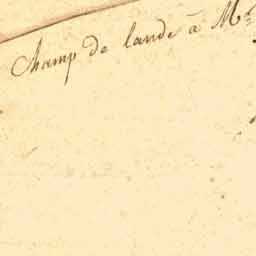 Champ de lande à M.